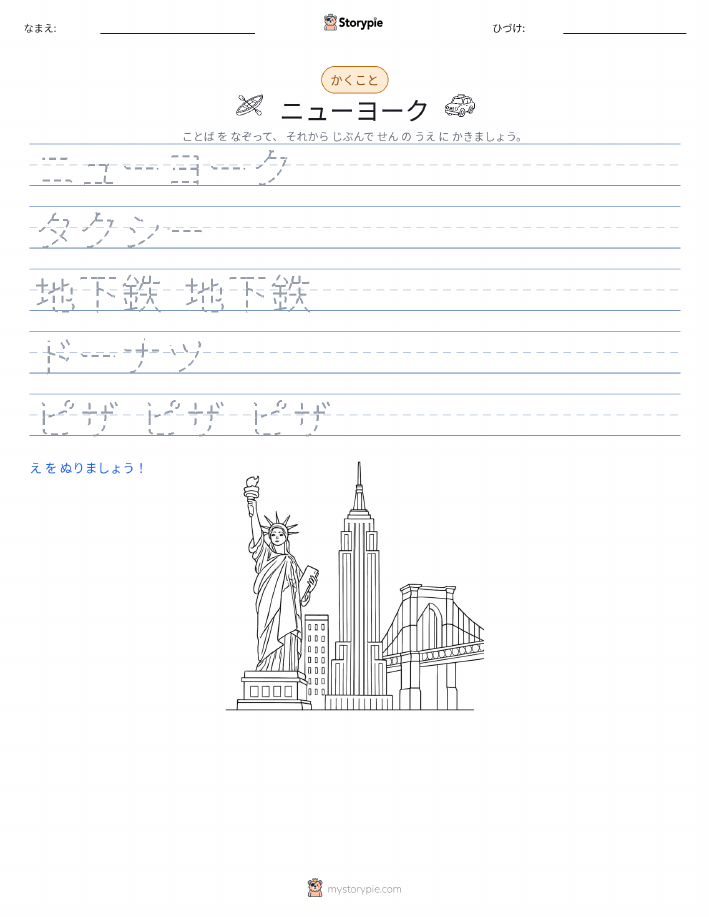 なまえ:
Storypie
ひづけ:
かくこと
ニューヨーク
ことば を なぞって、 それから じぶんで せん の うえ に かきましょう。
ニューヨーク
タクシー
地下鉄 地下鉄
ドーナツ
ピザ ピザ ピザ
え を ぬりましょう！
mystorypie.com